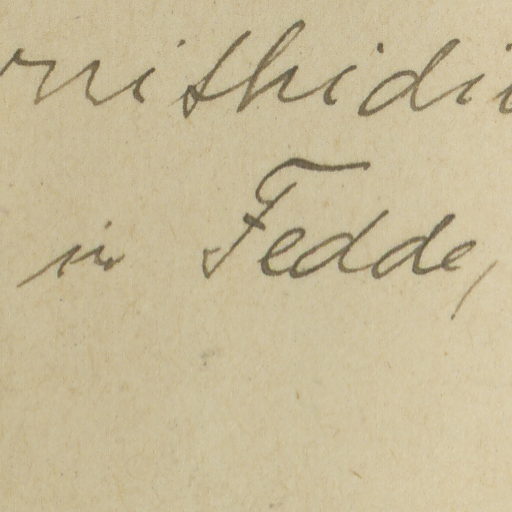 rnithidiu
in Fedde,